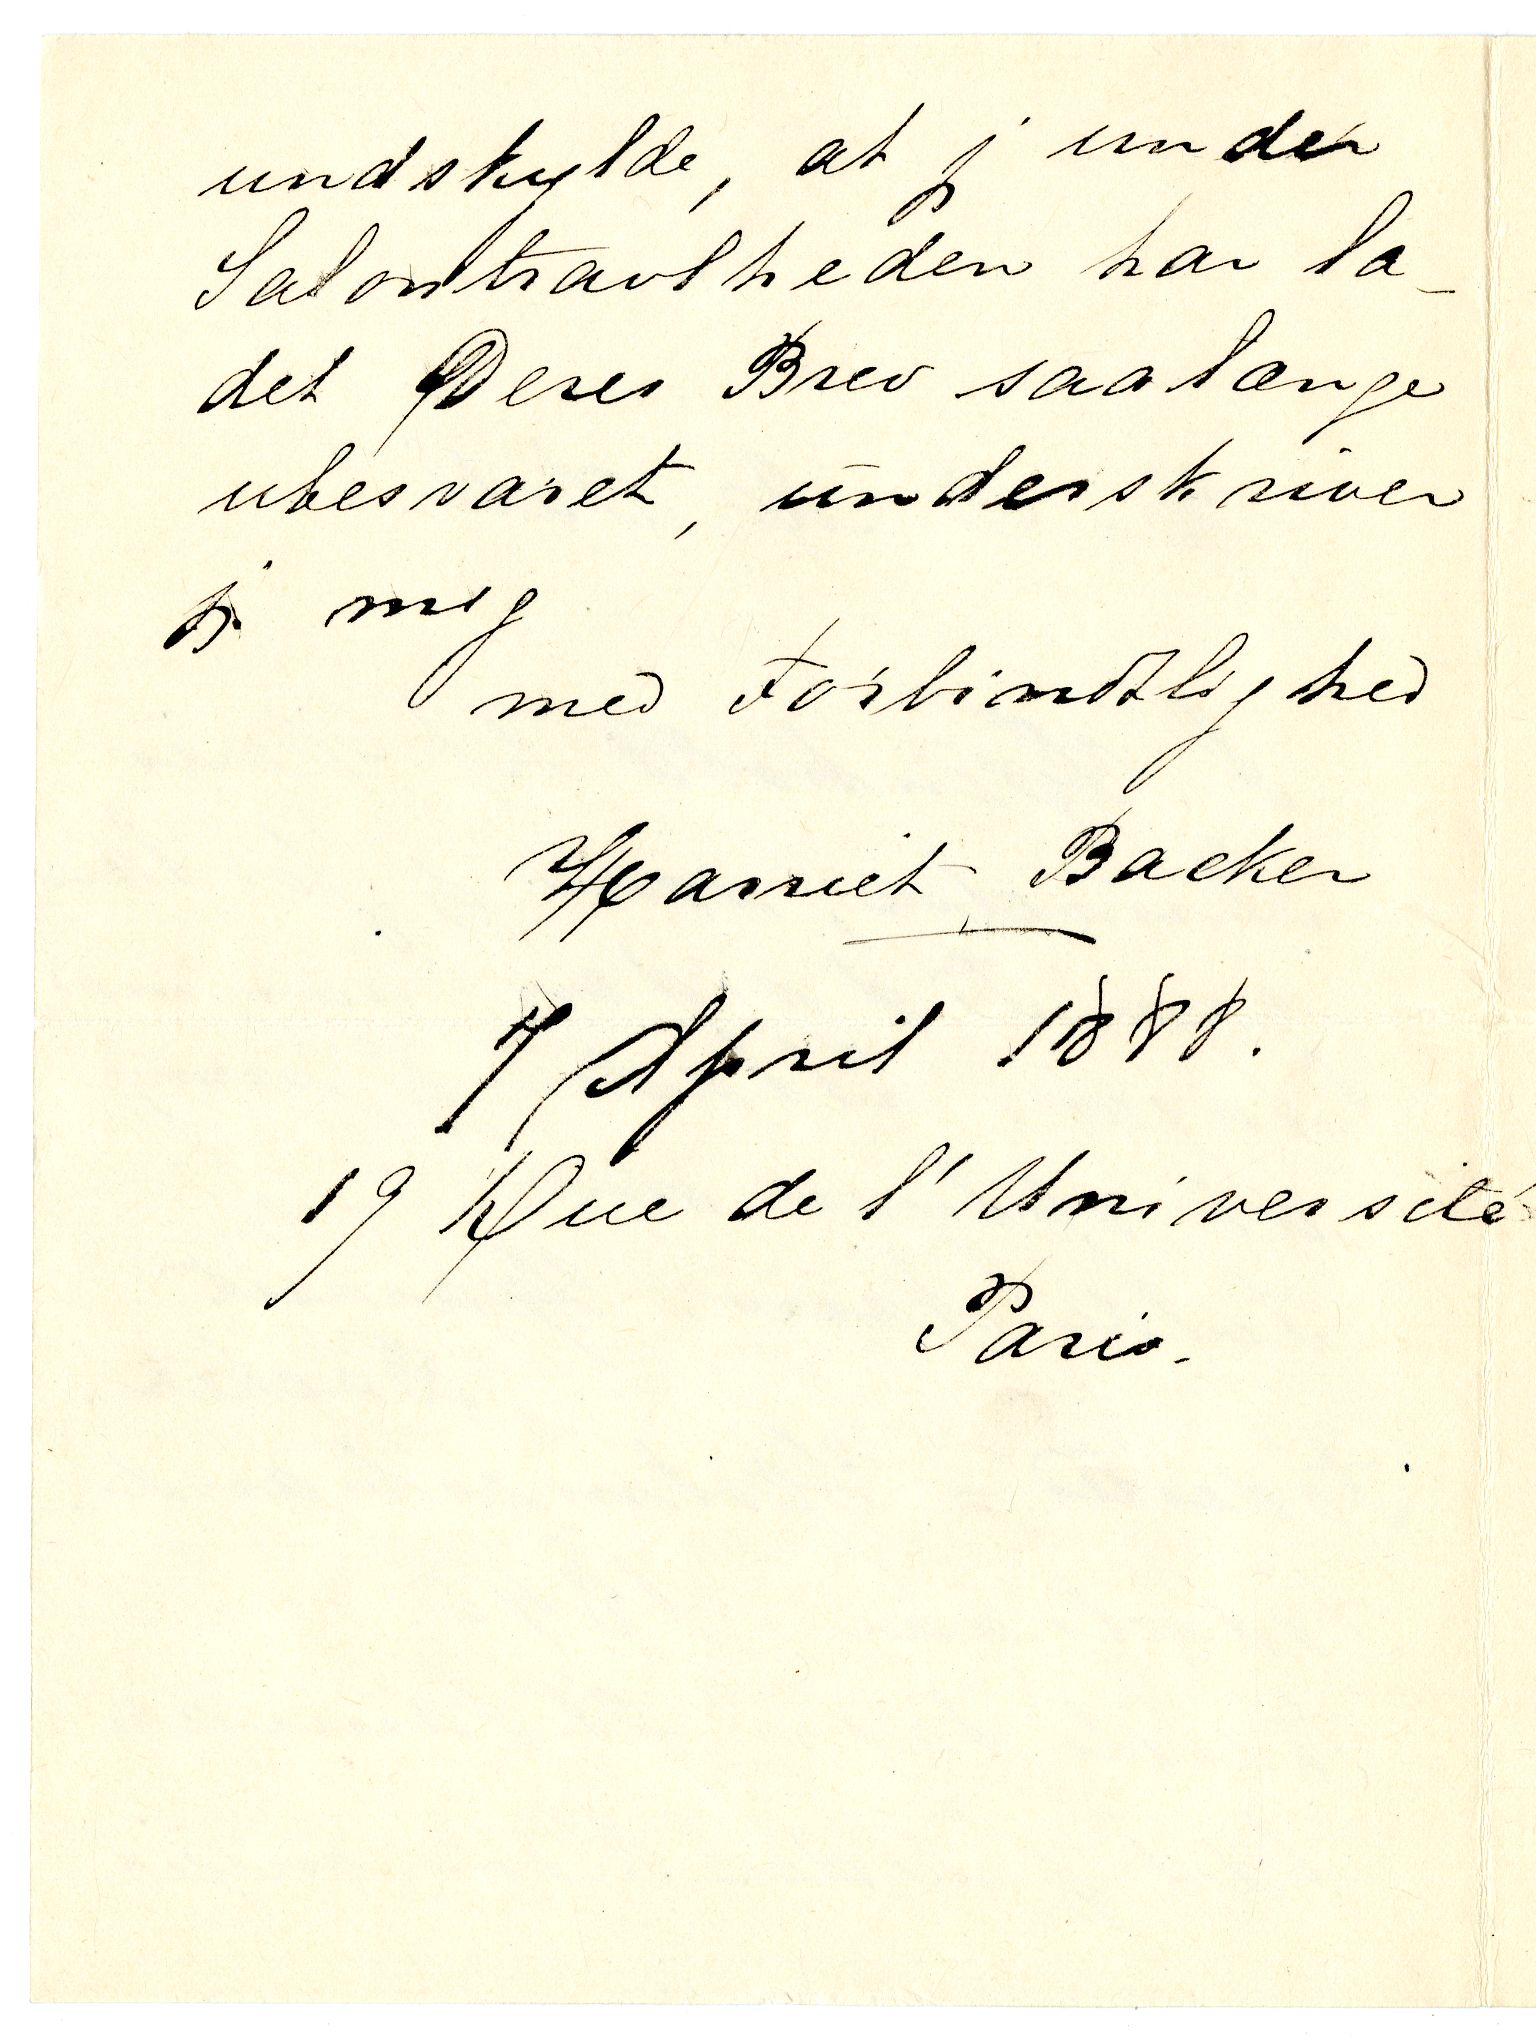 undskylde, at j under
Salontravlheden har la-
det Deres Brev saalænge
ubesvaret, underskriver
j. mig
med Forbindtlighed
Harriet Backer
7 April 1888.
19 Rue de l'Université
Paris.